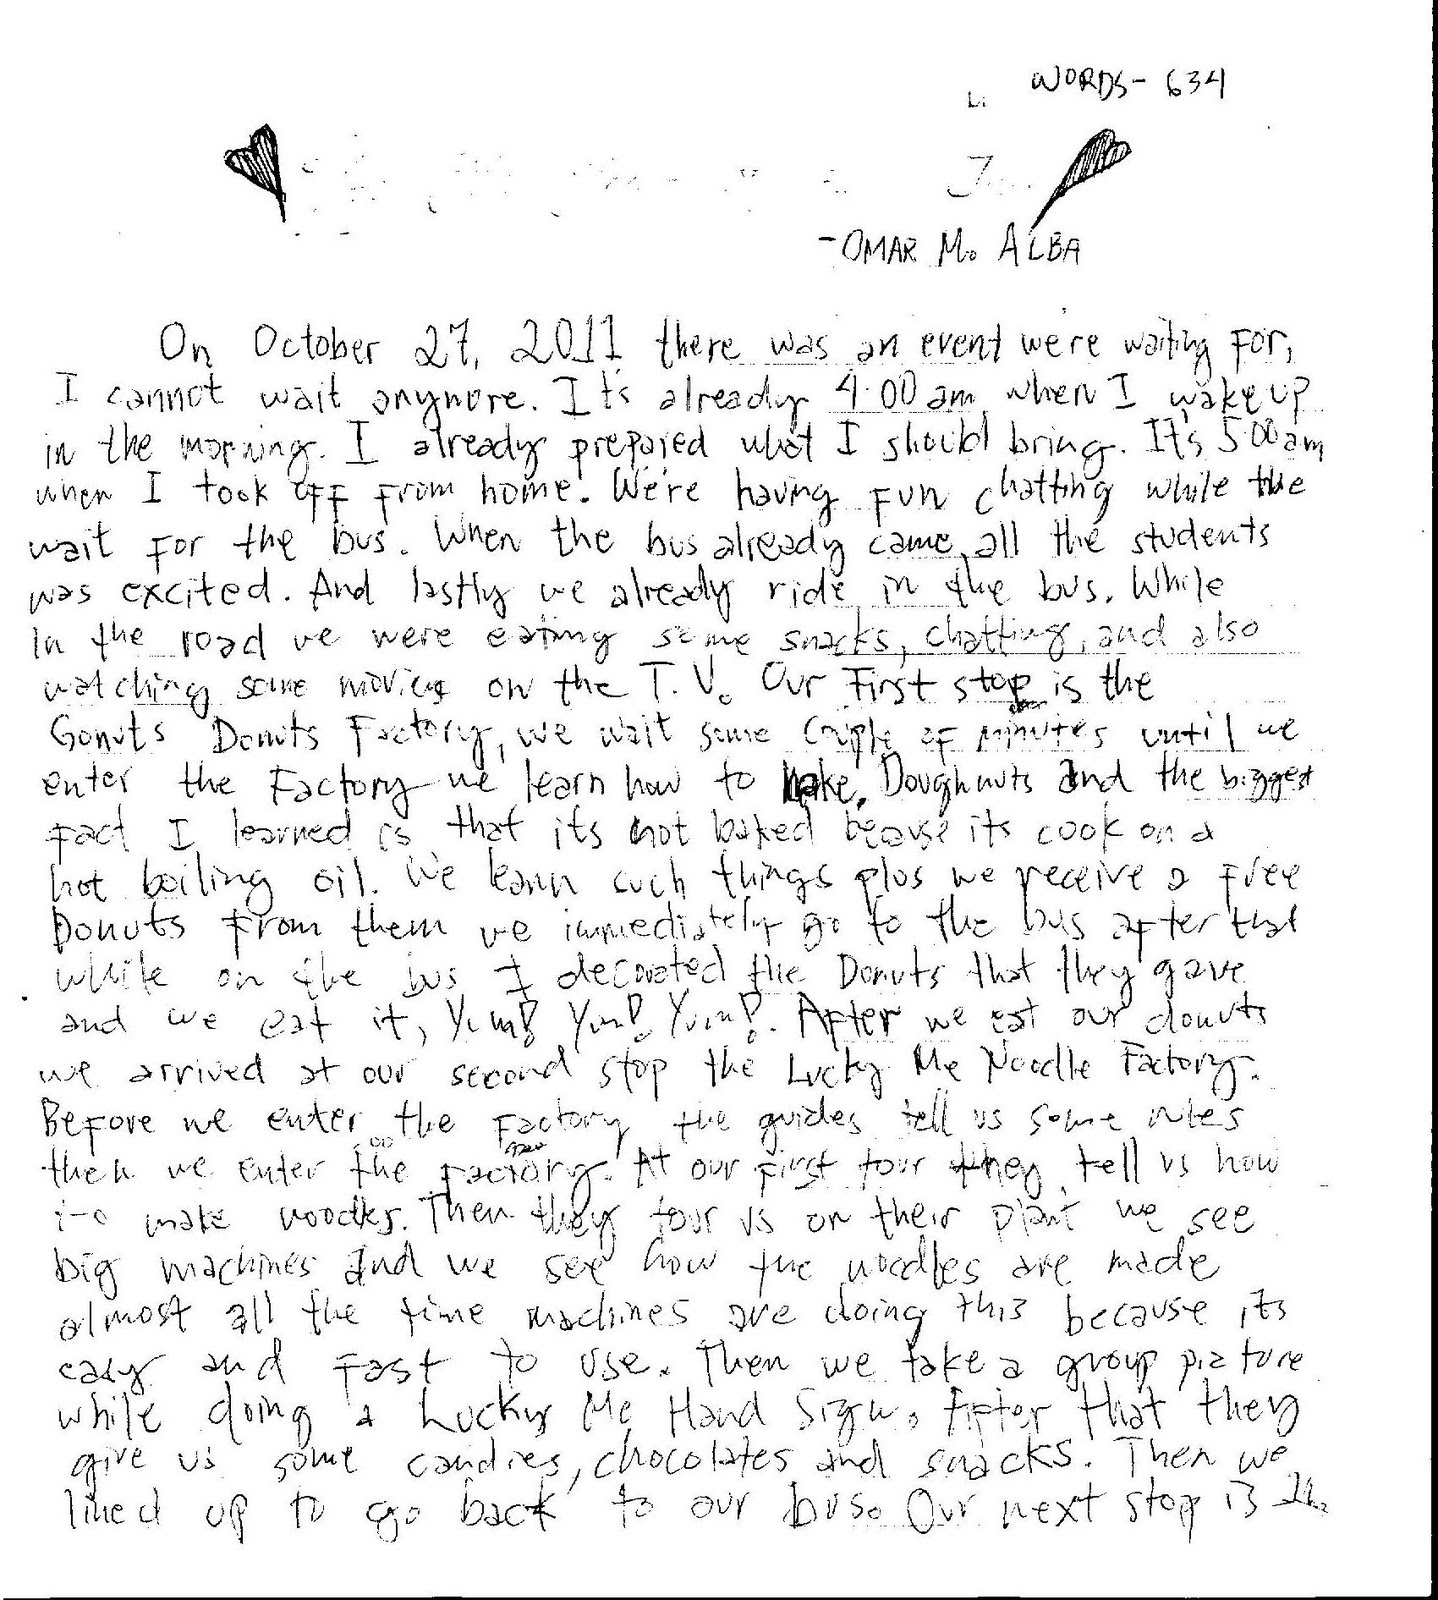 WORDS- 634
-OMAR M. ALBA
On October 27, 2011 there was an event we're waiting for,
I cannot wait anymore. It's already 4:00 am when I wake up
in the morning. I already prepared what I should bring. It's 5:00 am
when I took off from home. We're having fun chatting while the
wait for the bus. When the bus already came, all the students
was excited. And lastly we already ride in the bus. While
In the road we were eating some snacks, chatting, and also
watching some movies on the T.V. Our first stop is the
Gonuts Donuts Factory, we wait some couple of minutes until we
enter the factory we learn how to make Doughnuts and the biggest
fact I learned is that its not baked because its cook on a
hot boiling oil. We learn such things plus we receive a free
Donuts from them we immediately go to the bus after that
while on the bus I decorated the Donuts that they gave
and we eat it, Yum! Yum! Yum!. After we eat our donuts
we arrived at our second stop the Lucky Me Noodle Factory.
Before we enter the factory the guides tell us some rules
then we enter the factory. At our first tour they tell us how
to make noodles. Then they tour us on their plant we see
big machines and we see how the noodles are made
almost all the time machines are doing this because its
easy and fast to use. Then we take a group picture
while doing a Lucky Me Hand Sign. After that they
give us some candies, chocolates and snacks. Then we
lined up to go back to our bus. Our next stop is the